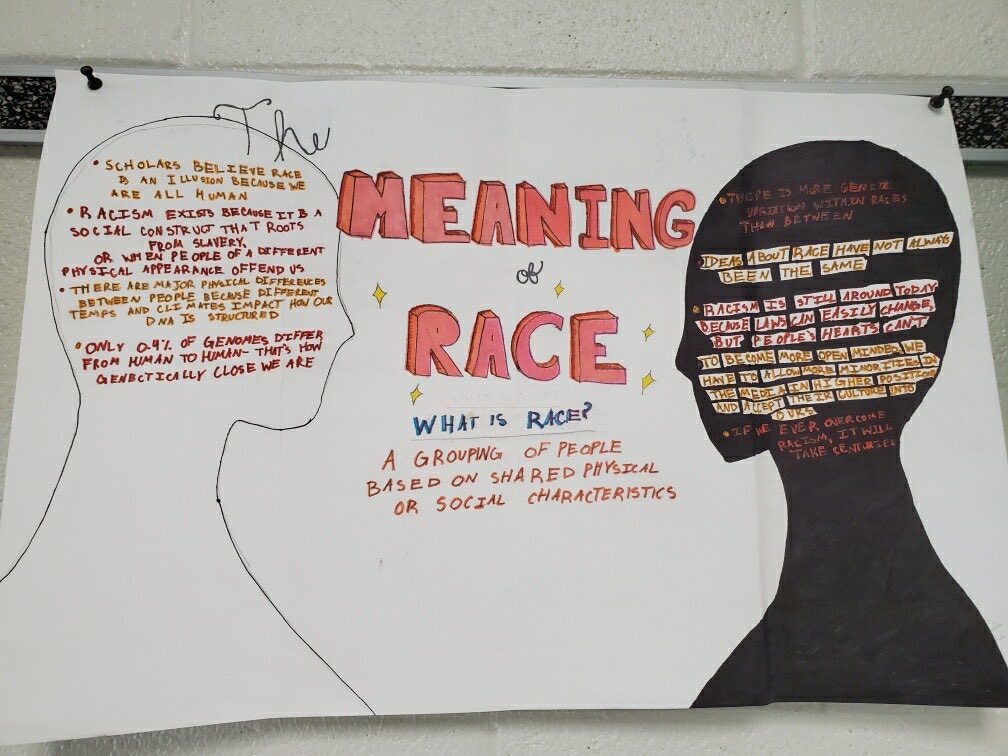 The
MEANING
of
RACE
WHAT IS RACE?
A GROUPING OF PEOPLE
BASED ON SHARED PHYSICAL
OR SOCIAL CHARACTERISTICS
• SCHOLARS BELIEVE RACE
IS AN ILLUSION BECAUSE WE
ARE ALL HUMAN
• RACISM EXISTS BECAUSE IT IS A
SOCIAL CONSTRUCT THAT ROOTS
FROM SLAVERY,
OR WHEN PEOPLE OF A DIFFERENT
PHYSICAL APPEARANCE OFFEND US
• THERE ARE MAJOR PHYSICAL DIFFERENCES
BETWEEN PEOPLE BECAUSE DIFFERENT
TEMPS AND CLIMATES IMPACT HOW OUR
DNA IS STRUCTURED
• ONLY 0.4% OF GENOMES DIFFER
FROM HUMAN TO HUMAN- THAT'S HOW
GENETICALLY CLOSE WE ARE
• THERE IS MORE GENETIC
VARIATION WITHIN RACES
THAN BETWEEN
IDEAS ABOUT RACE HAVE NOT ALWAYS
BEEN THE SAME
• RACISM IS STILL AROUND TODAY
BECAUSE LAWS CAN EASILY CHANGE,
BUT PEOPLE'S HEARTS CAN'T
TO BECOME MORE OPEN MINDED, WE
HAVE TO ALLOW MORE MINORITIES IN
THE MEDIA IN HIGHER POSITIONS
AND ACCEPT THEIR CULTURE INTO
OURS
• IF WE EVER OVERCOME
RACISM, IT WILL
TAKE CENTURIES